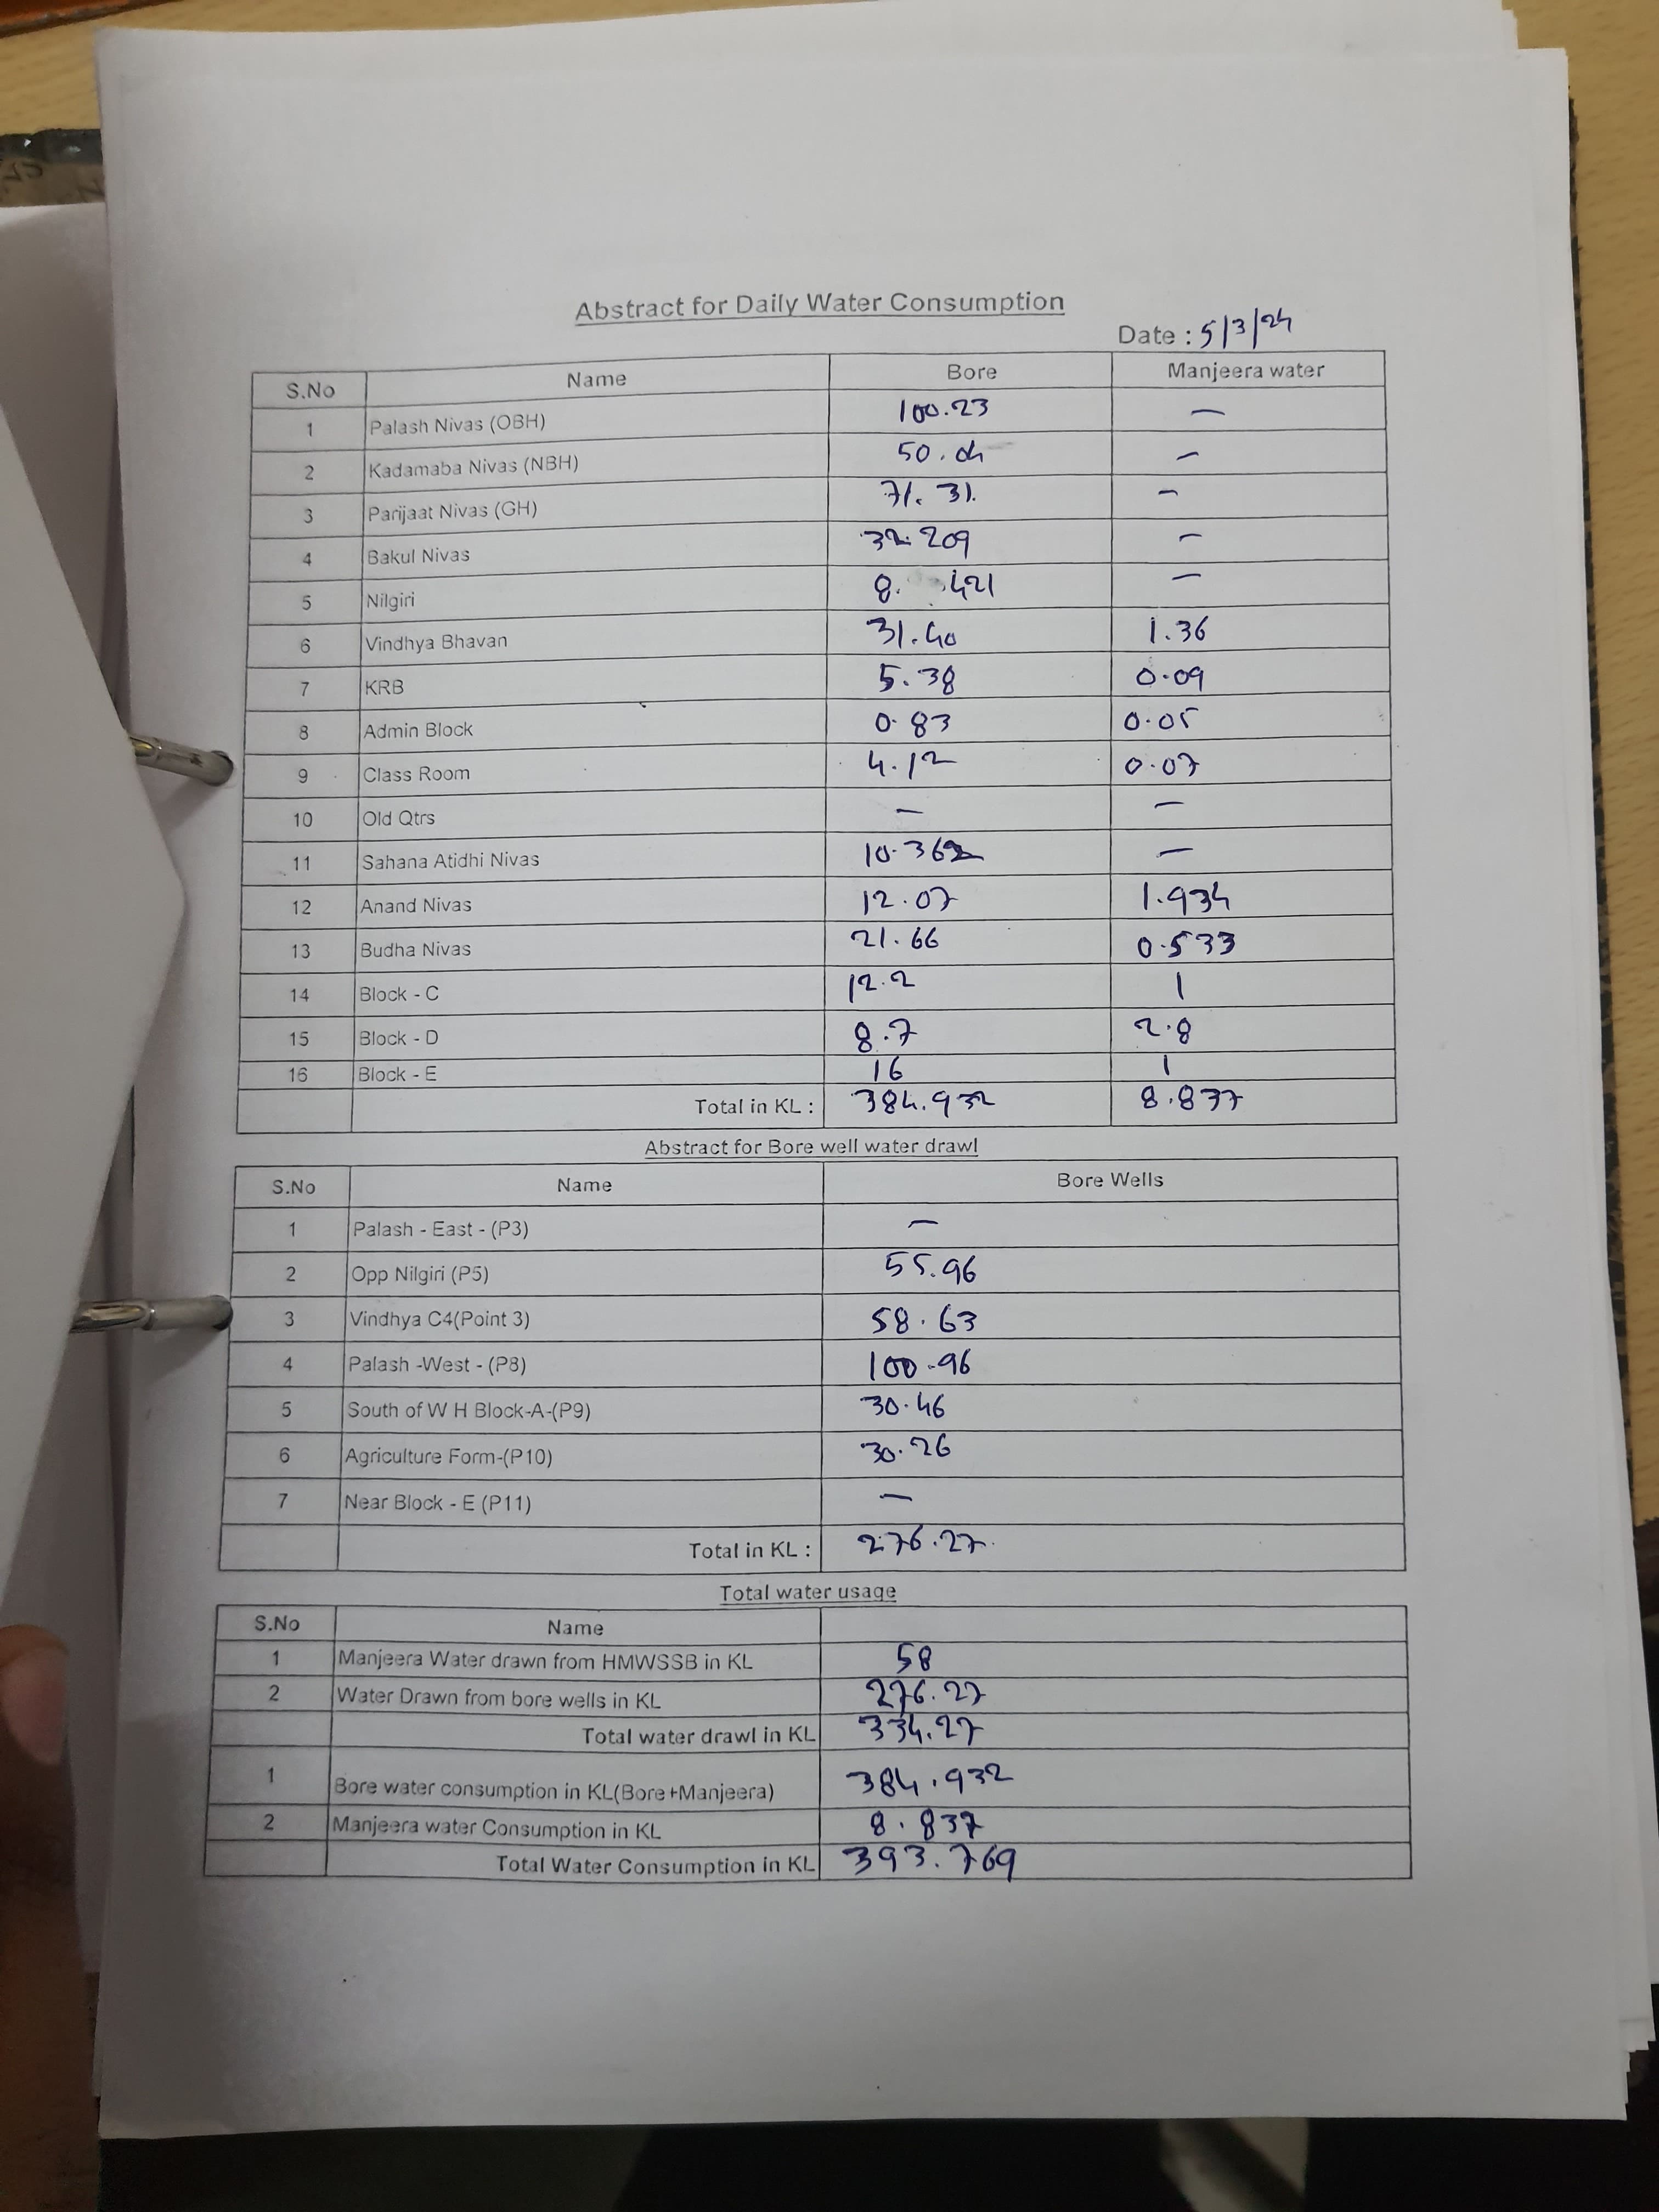 Abstract for Daily Water Consumption
Date : 5/3/24
S.No Name Bore Manjeera water
1 Palash Nivas (OBH) 100.23 —
2 Kadamaba Nivas (NBH) 50.04 —
3 Parijaat Nivas (GH) 71.31 —
4 Bakul Nivas 32.209 —
5 Nilgiri 8.421 —
6 Vindhya Bhavan 31.40 1.36
7 KRB 5.38 0.09
8 Admin Block 0.83 0.05
9 Class Room 4.12 0.07
10 Old Qtrs — —
11 Sahana Atidhi Nivas 10.362 —
12 Anand Nivas 12.07 1.934
13 Budha Nivas 21.66 0.533
14 Block - C 12.2 1
15 Block - D 8.7 2.8
16 Block - E 16 1
Total in KL : 384.932 8.837
Abstract for Bore well water drawl
S.No Name Bore Wells
1 Palash - East - (P3) —
2 Opp Nilgiri (P5) 55.96
3 Vindhya C4(Point 3) 58.63
4 Palash -West - (P8) 100.96
5 South of W H Block-A-(P9) 30.46
6 Agriculture Form-(P10) 30.26
7 Near Block - E (P11) —
Total in KL : 276.27
Total water usage
S.No Name
1 Manjeera Water drawn from HMWSSB in KL 58
2 Water Drawn from bore wells in KL 276.27
Total water drawl in KL 334.27
1 Bore water consumption in KL(Bore+Manjeera) 384.932
2 Manjeera water Consumption in KL 8.837
Total Water Consumption in KL 393.769